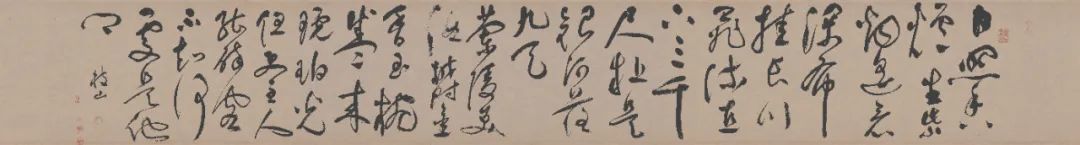 日照香
爐生紫
烟遙看
瀑布
挂長川
飛流直
下三千
尺疑是
銀河落
九天
蘭陵美
酒鬱金
香玉椀
盛來
琥珀光
但使主人
能醉客
不知何
處是他
鄉
枝山